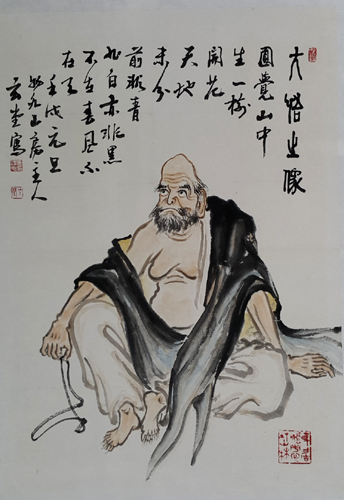 大悟之像
圓覺山中
生一樹
開花
天地
未分
前非青
非白亦非黑
不在春風不
在天
壬戌元旦
九山房主人
寫